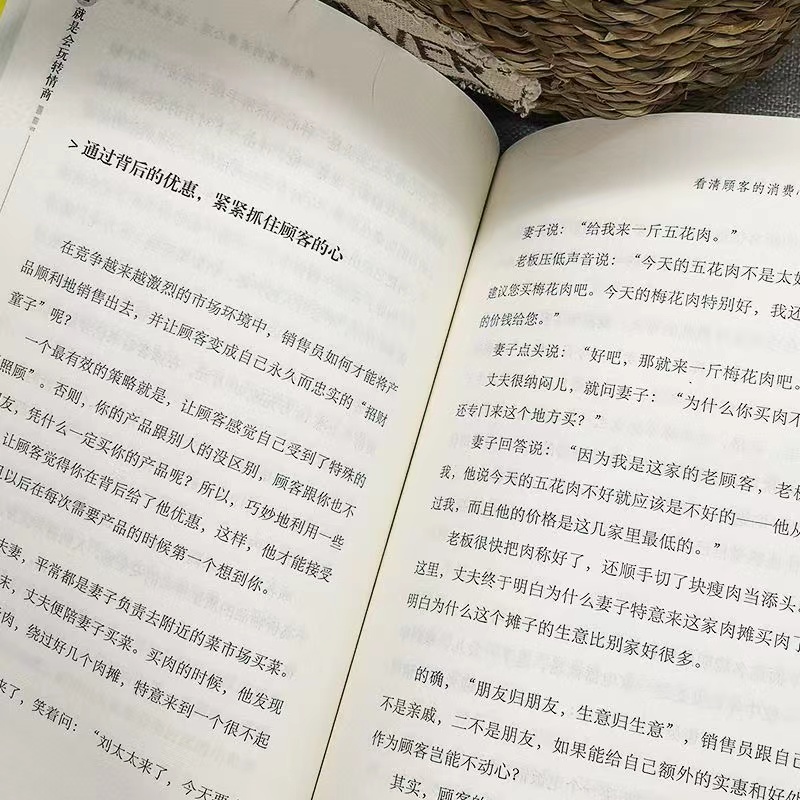 就是会玩转情商
>通过背后的优惠，紧紧抓住顾客的心
在竞争越来越激烈的市场环境中，销售员如何才能将产
品顺利地销售出去，并让顾客变成自己永久而忠实的“招财
童子”呢？
一个最有效的策略就是，让顾客感觉自己受到了特殊的
照顾”。否则，你的产品跟别人的没区别，顾客跟你也不
友，凭什么一定买你的产品呢？所以，巧妙地利用一些
让顾客觉得你在背后给了他优惠，这样，他才能接受
以后在每次需要产品的时候第一个想到你。
夫妻，平常都是妻子负责去附近的菜市场买菜。
末，丈夫便陪妻子买菜。买肉的时候，他发现
肉，绕过好几个肉摊，特意来到一个很不起
来了，笑着问：“刘太太来了，今天要
看清顾客的消费
妻子说：“给我来一斤五花肉。”
老板压低声音说：“今天的五花肉不是太好
建议您买梅花肉吧。今天的梅花肉特别好，我还
的价钱给您。”
妻子点头说：“好吧，那就来一斤梅花肉吧。
丈夫很纳闷儿，就问妻子：“为什么你买肉不
还专门来这个地方买？”
妻子回答说：“因为我是这家的老顾客，老板
我，他说今天的五花肉不好就应该是不好的——他从
过我，而且他的价格是这几家里最低的。”
老板很快把肉称好了，还顺手切了块瘦肉当添头
这里，丈夫终于明白为什么妻子特意来这家肉摊买肉了
明白为什么这个摊子的生意比别家好很多。
的确，“朋友归朋友，生意归生意”，销售员跟自己
不是亲戚，二不是朋友，如果能给自己额外的实惠和好处
作为顾客岂能不动心？
其实，顾客的